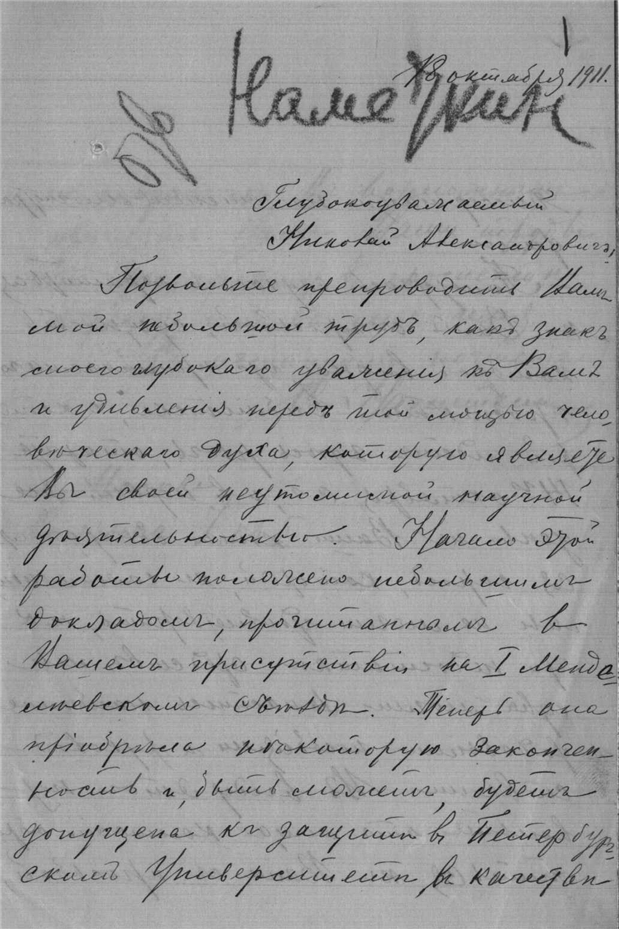 18 октября 1911.
Наметкин
Глубокоуважаемый
Николай Александровичъ,
Позвольте препроводить Вамъ
мой небольшой трудъ, какъ знакъ
моего глубокаго уваженія къ Вамъ
и удивленія передъ той мощью чело-
вѣческаго духа, которую являете
Вы своей неутомимой научной
дѣятельностью. Начало этой
работы положено небольшимъ
докладомъ, прочитаннымъ в
Вашемъ присутствіи на I Менде-
лѣевскомъ съѣздѣ. Теперь она
пріобрѣла нѣкоторую закончен-
ность и, быть можетъ, будетъ
допущена къ защитѣ въ Петербург-
скомъ Университетѣ въ качествѣ